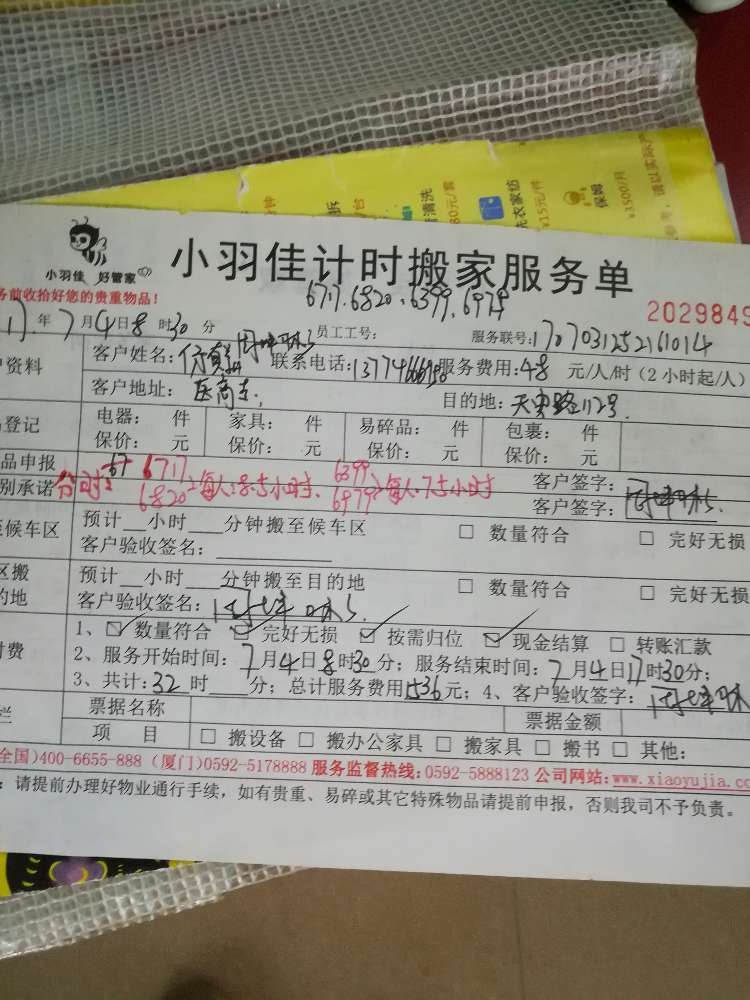 小羽佳 好管家
小羽佳计时搬家服务单
务前收拾好您的贵重物品！
6717.6820、6399、6979
2029849
17年7月4日8时30分 员工工号： 服务联号：1707031252161014
户资料 客户姓名： 联系电话： 服务费用：48 元/人/时（2小时起/人）
客户地址：医高专. 目的地：天安路112号
登记 电器： 件 家具： 件 易碎品： 件 包裹： 件
保价： 元 保价： 元 保价： 元 保价： 元
品申报 客户签字：
别承诺 分时： 6717 6820 每人：8.5小时、 6399 6979 每人7.5小时 客户签字：
至候车区 预计__小时___分钟搬至候车区 □ 数量符合 □ 完好无损
客户验收签名：
区搬 预计__小时___分钟搬至目的地 □ 数量符合 □ 完好无损
的地 客户验收签名：
1、☑ 数量符合 ☑ 完好无损 ☑ 按需归位 ☑ 现金结算 □ 转账汇款
付费 2、服务开始时间：7月4日8时30分；服务结束时间：7月4日17时30分；
3、共计：32时___分；总计服务费用1536元；4、客户验收签字：
栏 票据名称 票据金额
项 目 □ 搬设备 □ 搬办公家具 □ 搬家具 □ 搬书 □ 其他：
全国)400-6655-888（厦门)0592-5178888 服务监督热线:0592-5888123 公司网站:www.xiaoyujia.co
：请提前办理好物业通行手续，如有贵重、易碎或其它特殊物品请提前申报，否则我司不予负责。
清洗
洗衣家纺
￥15元/件
保姆
￥3500/月